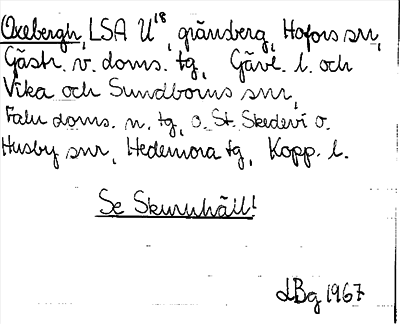 Oxebergh, LSA U¹⁸, gränsberg, Hofors snr,
Gästr. v. doms. tg, Gävl. l. och
Vika och Sundborns snr,
Falu doms. n. tg, o. St. Skedevi o.
Husby snr, Hedemora tg, Kopp. l.
Se Skuruhäll!
dBg 1967